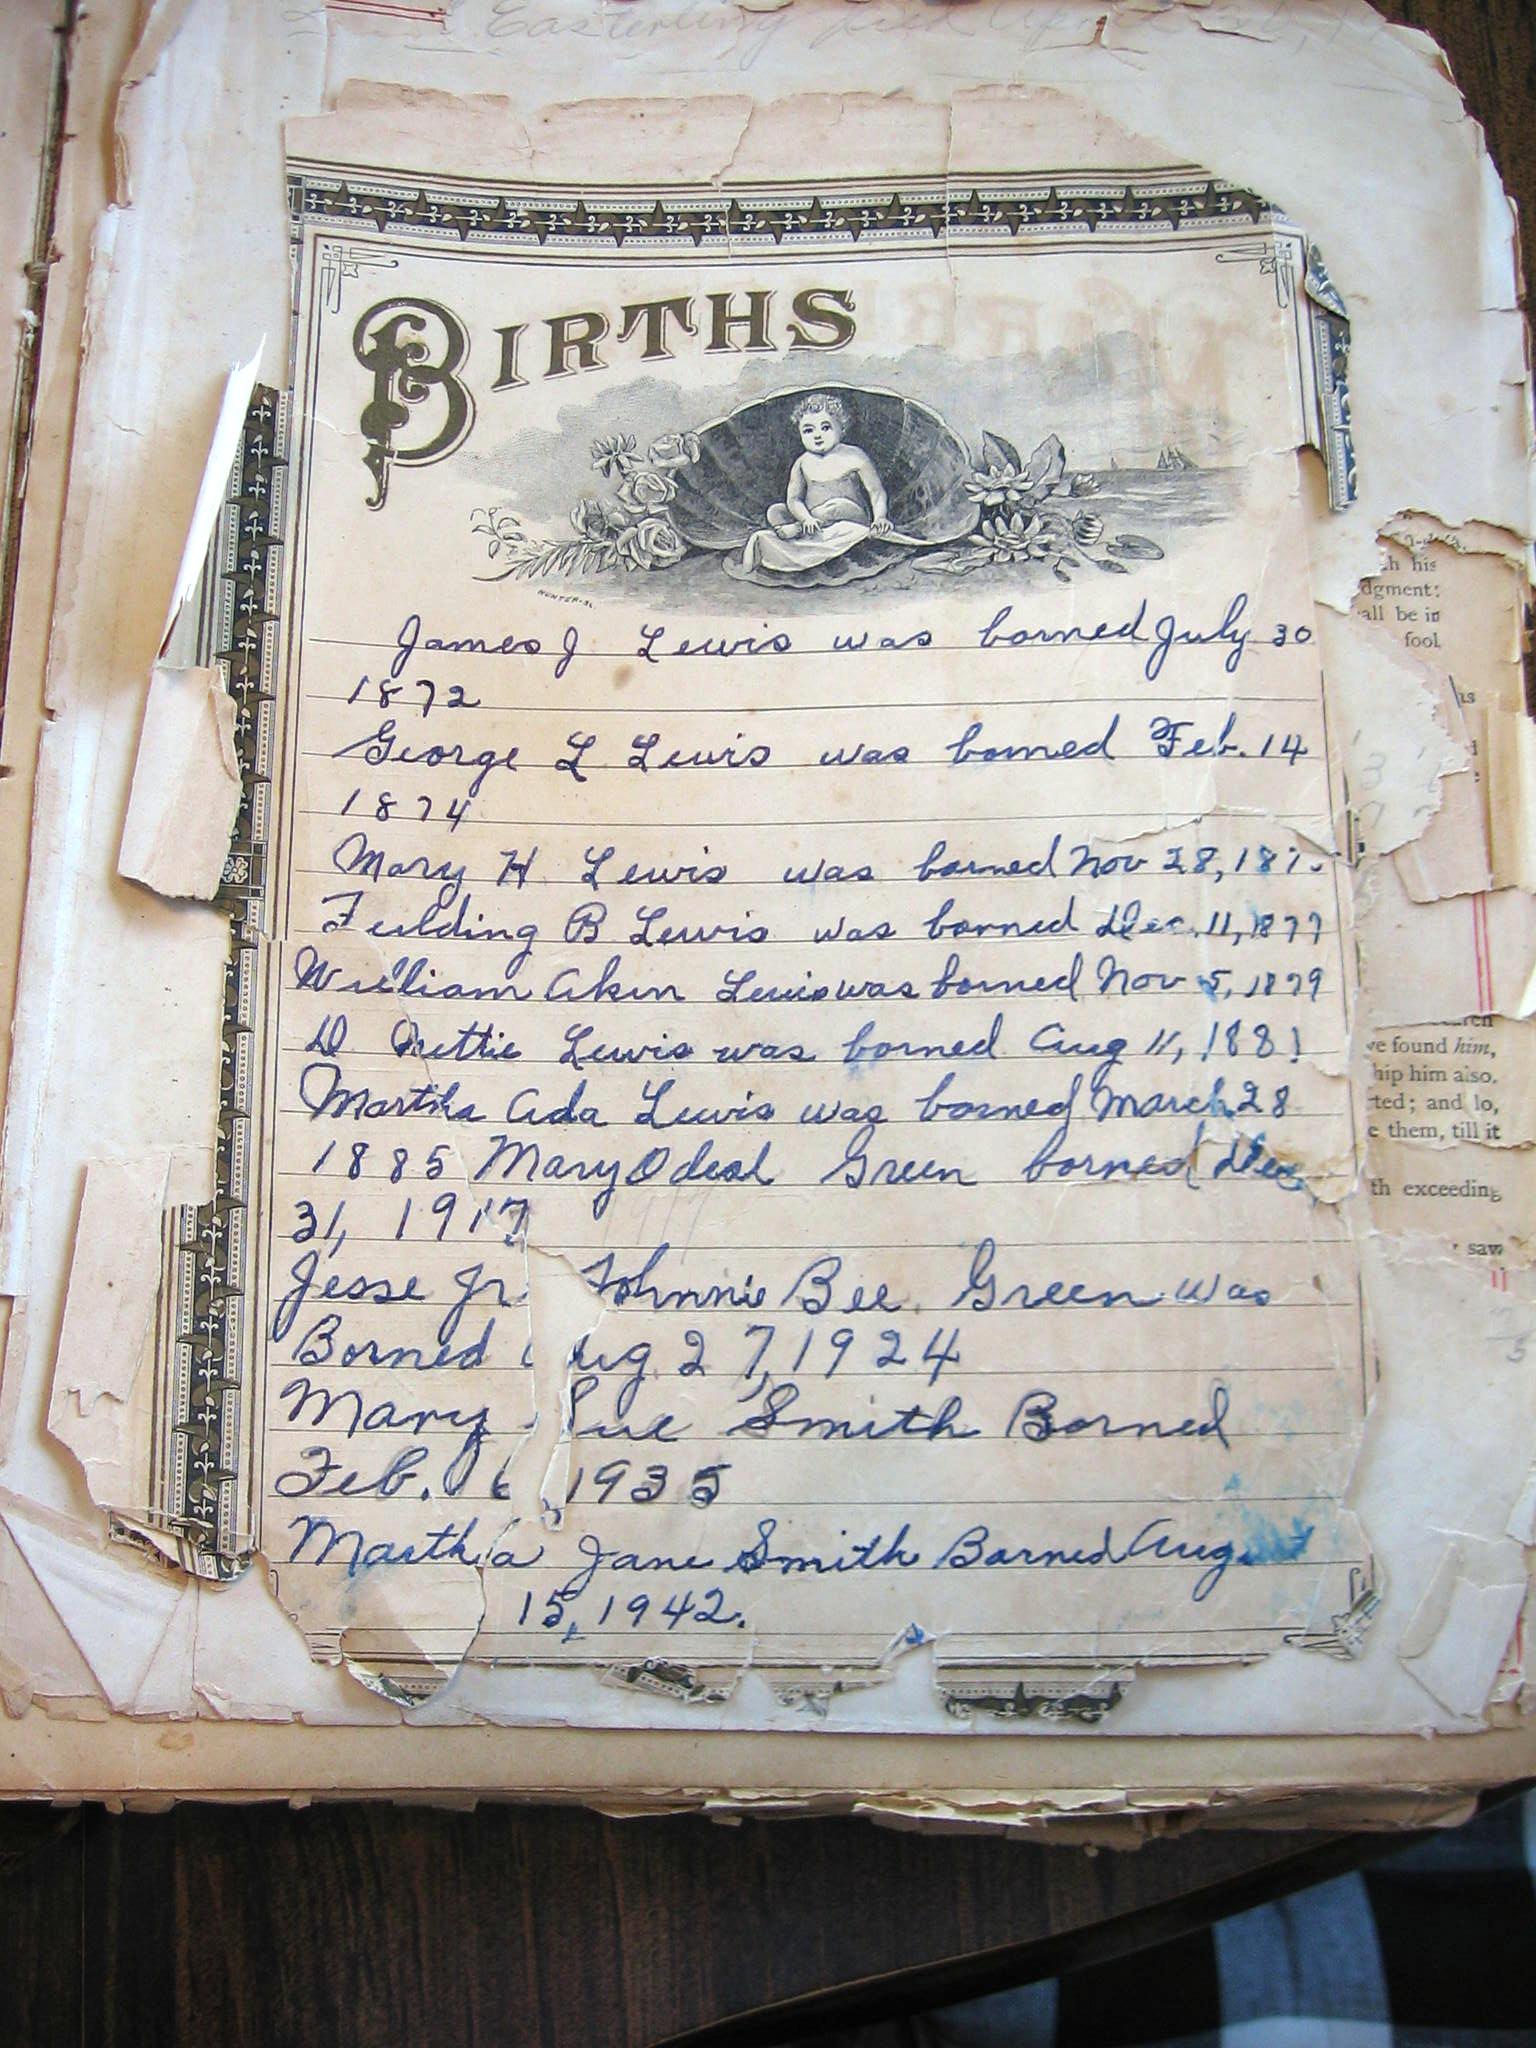 Easterling died
BIRTHS
HUNTER
James J Lewis was borned July 30
1872
George L Lewis was borned Feb. 14
1874
Mary H Lewis was borned Nov 28,
Feilding B Lewis was borned Dec. 11, 1877
William Akin Lewis was borned Nov 5, 1879
D Lewis was borned Aug 11, 1881
Martha Ada Lewis was borned March 28
1885 Mary Odeal Green borned Dec
31, 1917
Jesse Jr. Johnnie Bee. Green was
Borned Aug 27, 1924
Mary Sue Smith Borned
Feb. 1935
Martha Jane Smith Borned August
15, 1942.
his
all be in
fool
ve found him,
hip him also.
ted; and lo,
e them, till it
th exceeding
saw